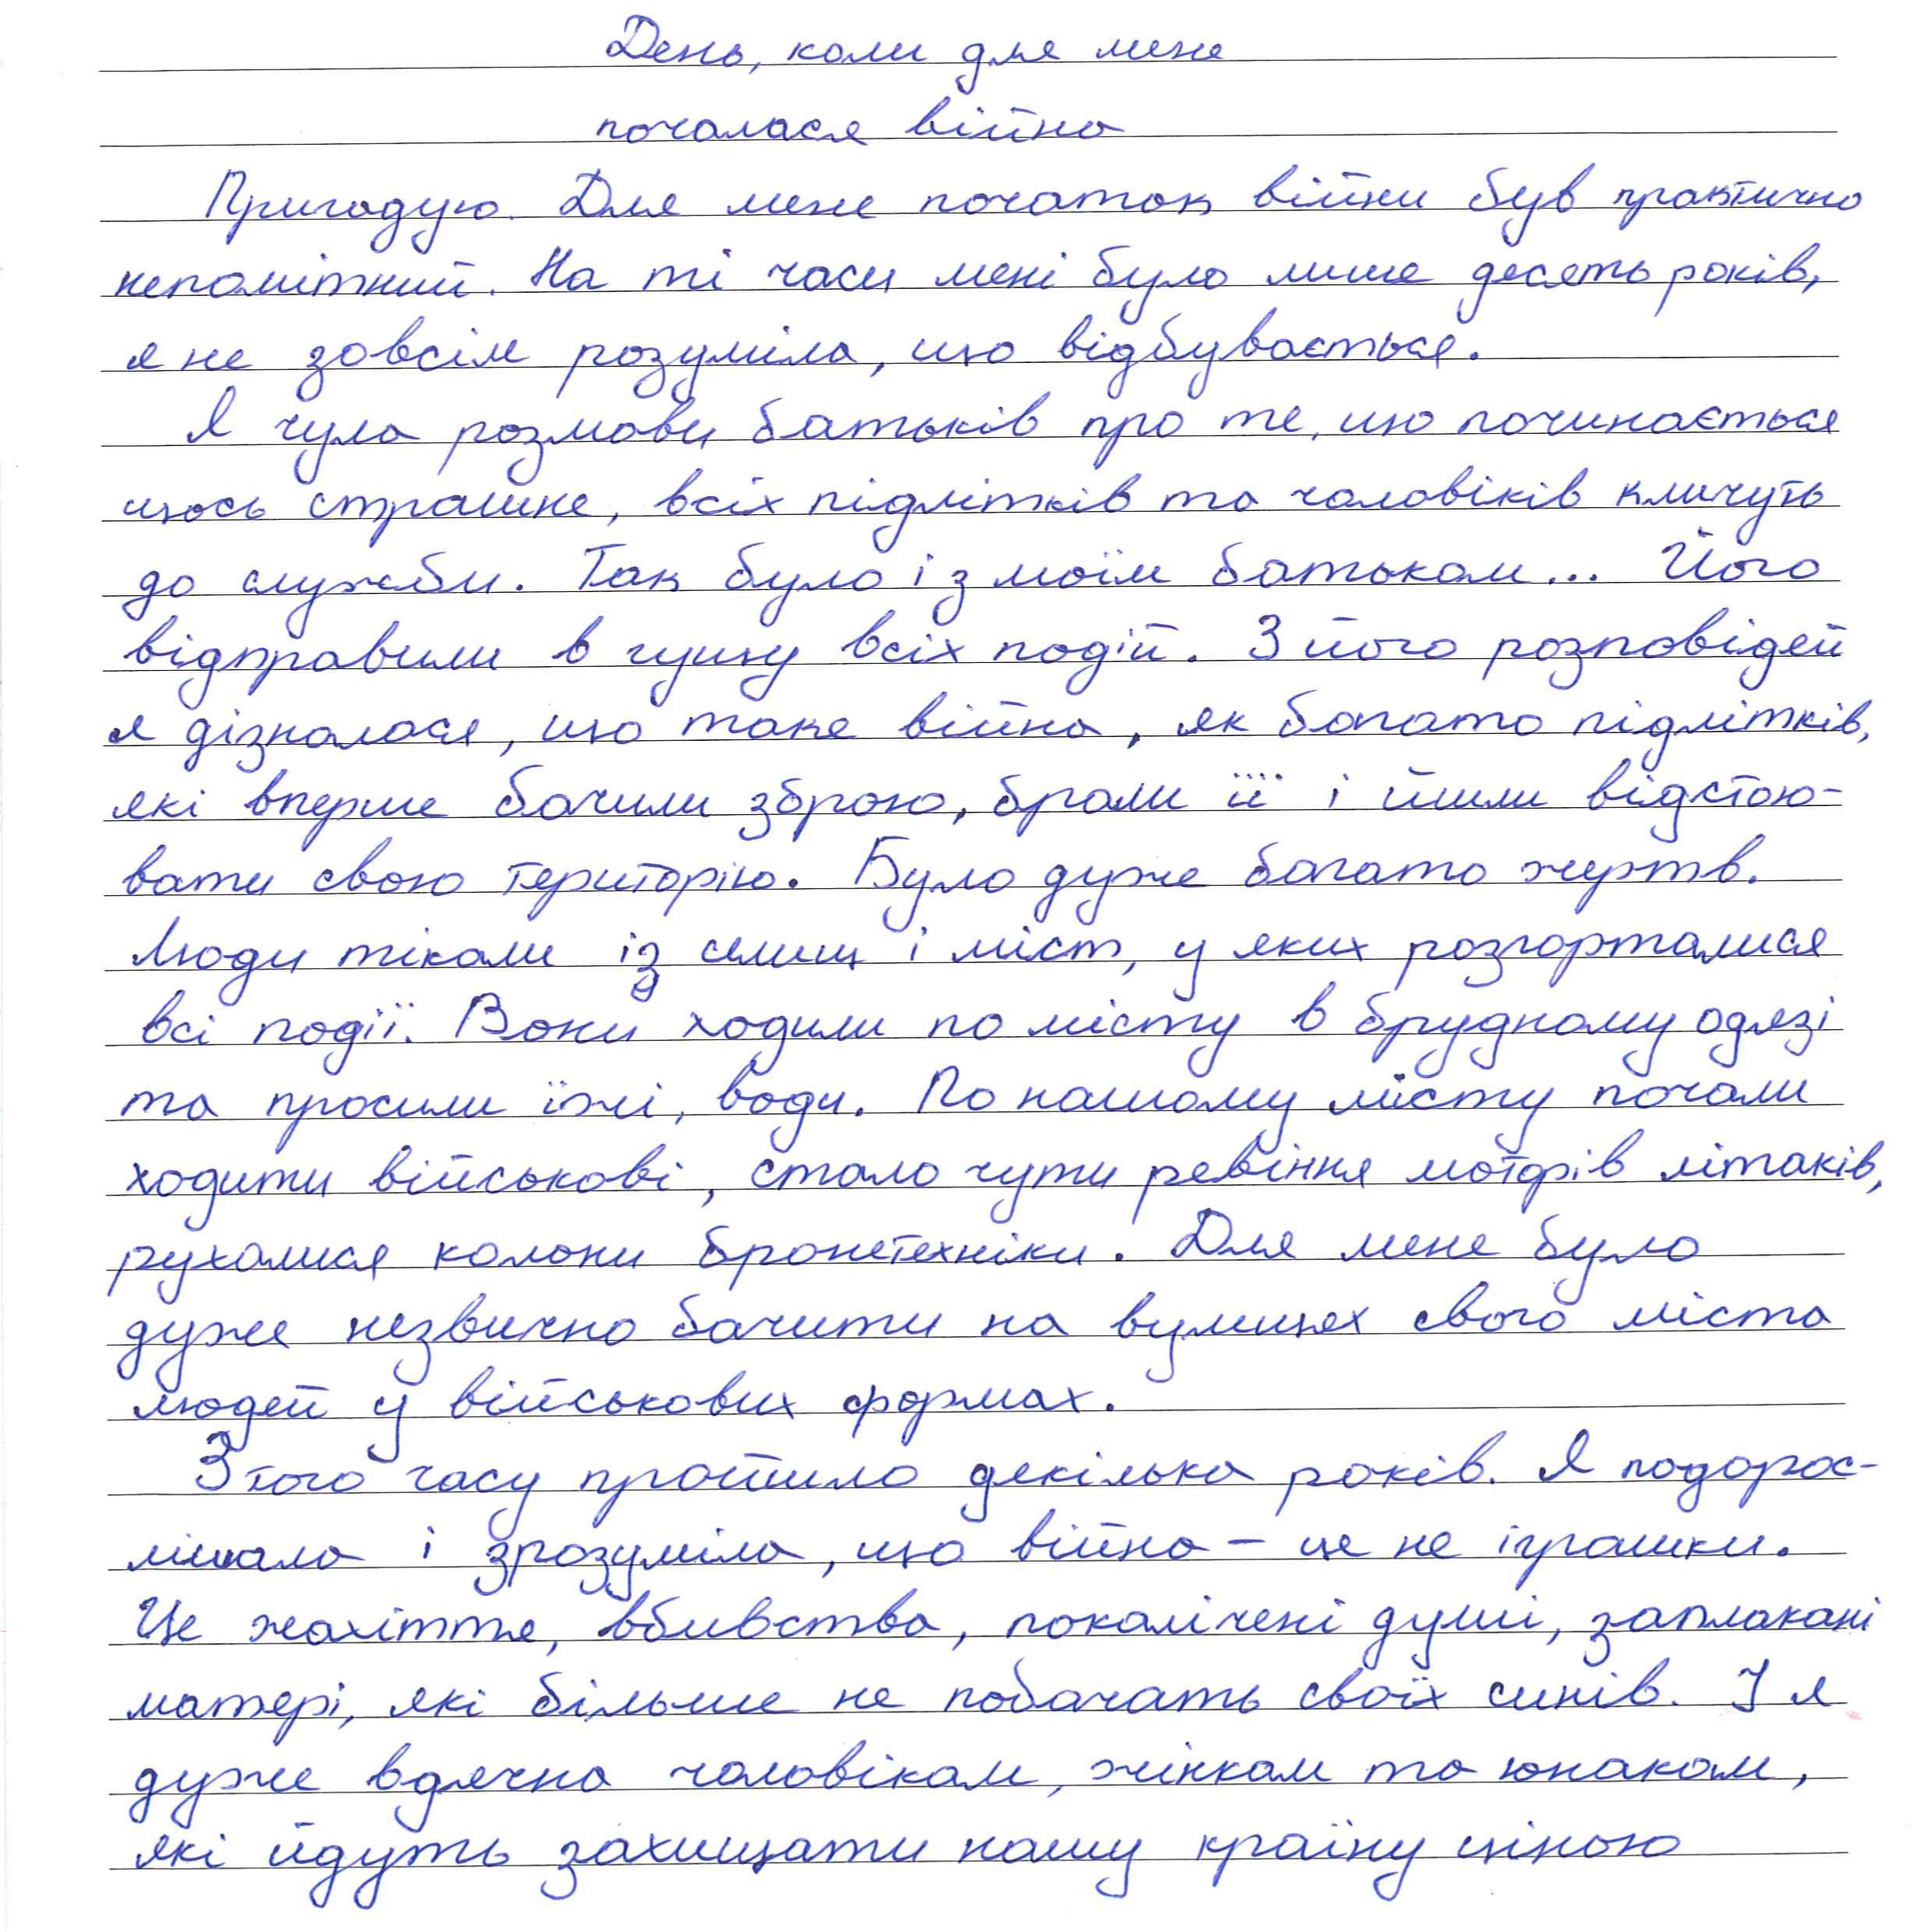 День, коли для мене
почалася війна
Пригадую. Для мене початок війни був практично
непомітний. На ті часи мені було лише десять років,
я не зовсім розуміла, що відбувається.
Я чула розмови батьків про те, що починається
щось страшне, всіх підлітків та чоловіків кличуть
до служби. Так було і з моїм батьком... Його
відправили в гущу всіх подій. З його розповідей
я дізналася, що таке війна, як багато підлітків,
які вперше бачили зброю, брали її і йшли відстою-
вати свою територію. Було дуже багато жертв.
Люди тікали із селищ і міст, у яких розгорталися
всі події. Вони ходили по місту в брудному одязі
та просили їжі, води. По нашому місту почали
ходити військові, стало чути ревіння моторів літаків,
рухалися колони бронетехніки. Для мене було
дуже незвично бачити на вулицях свого міста
людей у військових формах.
З того часу пройшло декілька років. Я подорос-
лішала і зрозуміла, що війна – це не іграшки.
Це жахіття, вбивства, покалічені душі, заплакані
матері, які більше не побачать своїх синів. І я
дуже вдячна чоловікам, жінкам та юнакам,
які йдуть захищати нашу країну ціною